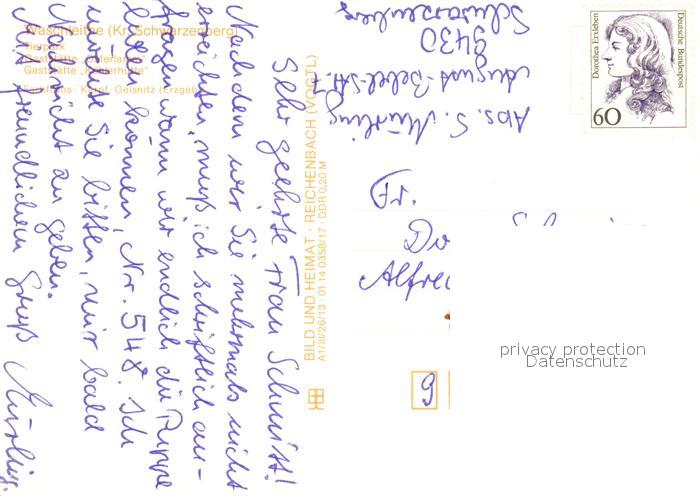 Waschleithe (Kr. Schwarzenberg)
Tierpark
Gaststätte "Osterlamm"
Gaststätte "Köhlerhütte"
Farbfotos: Kempf, Oelsnitz (Erzgeb.)
Sehr geehrte Frau Schmist!
Nachdem wir Sie mehrmals nicht
erreichten, muß ich schriftlich an-
fragen wann wir endlich die Puppe
können, Nr. 548. Ich
möchte Sie bitten, mir bald
Nachricht zu geben.
Mit freundlichem Gruß
BILD UND HEIMAT · REICHENBACH (VOGTL)
A1/III/26/13 · 01 14 0358/17 · DDR 0,20 M
Abs. S.
August-Bebel-Str.
9430
Schwarzenberg
Dorothea Erxleben
Deutsche Bundespost
60
Fr.
Do
Alfred
9
privacy protection
Datenschutz